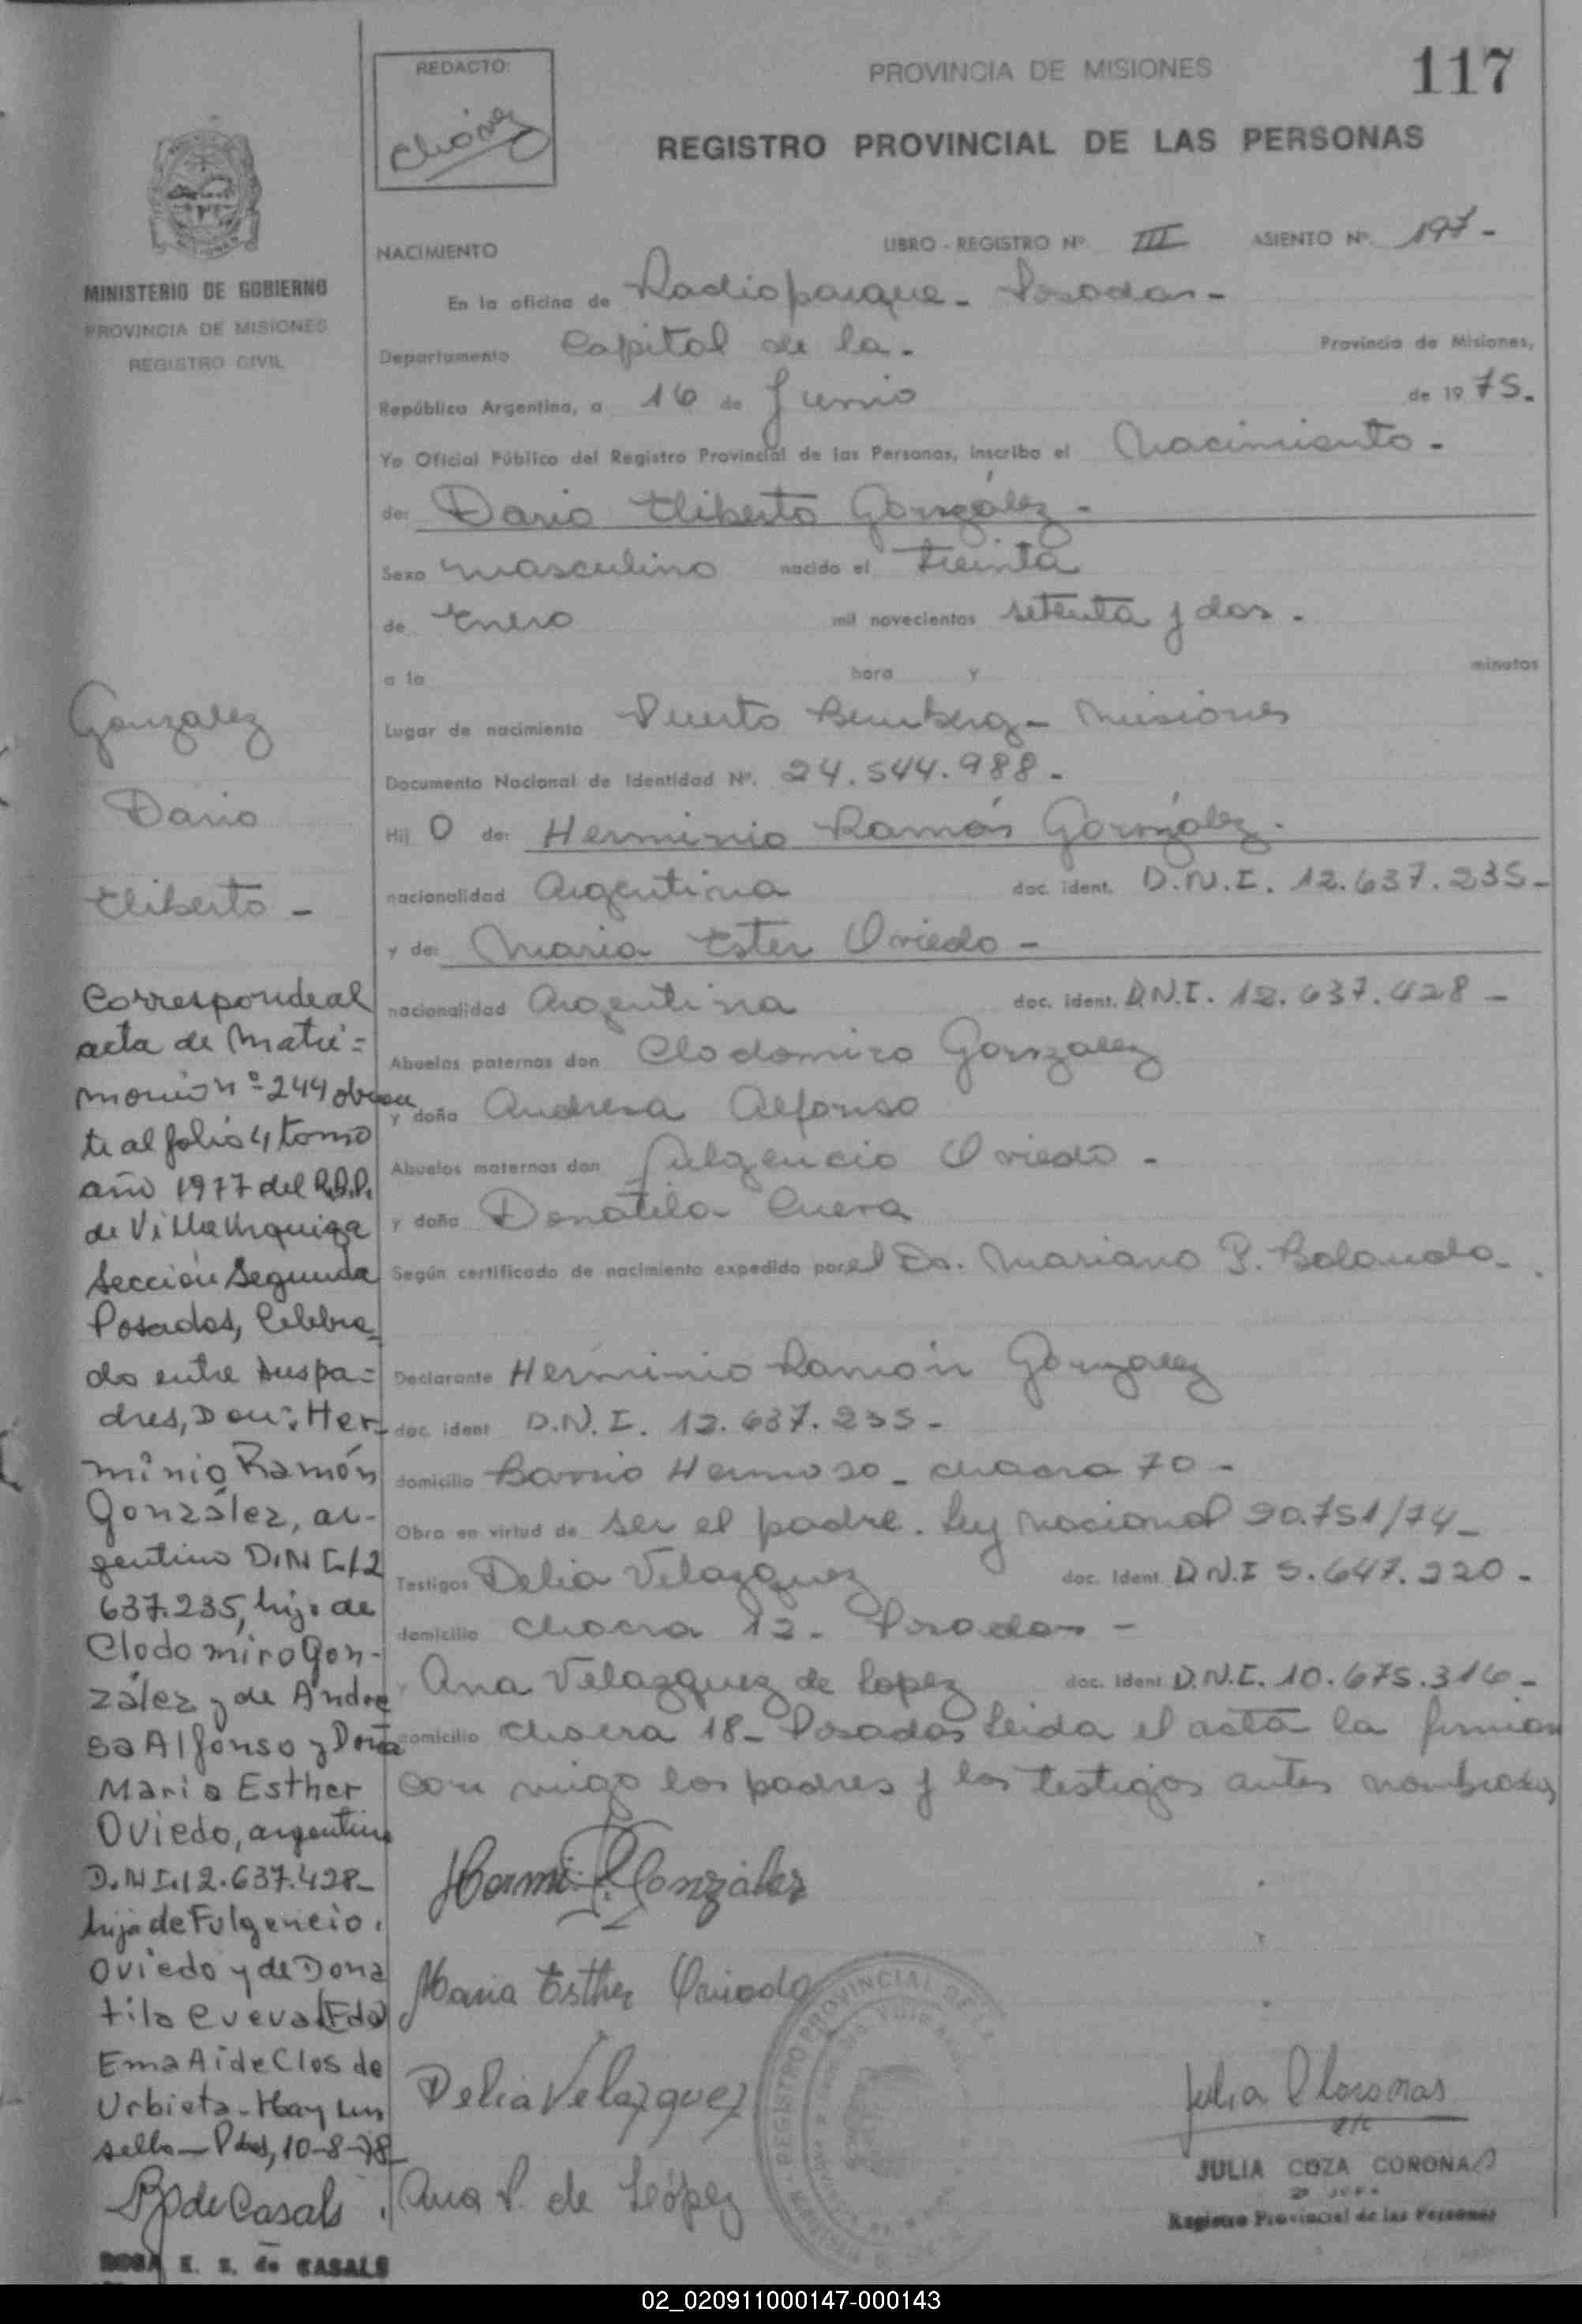 REDACTO:
PROVINCIA DE MISIONES
117
REGISTRO PROVINCIAL DE LAS PERSONAS
MINISTERIO DE GOBIERNO
PROVINCIA DE MISIONES
REGISTRO CIVIL
NACIMIENTO LIBRO - REGISTRO Nº. III ASIENTO Nº. 197-
En la oficina de Radioparque - Posadas -
Departamento Capital de la - Provincia de Misiones,
República Argentina, a 16 de Junio de 1975.
Yo Oficial Público del Registro Provincial de las Personas, inscribo el Nacimiento -
de: Dario Eliberto González -
Sexo masculino nacido el treinta
de Enero mil novecientos setenta y dos.
a la hora y minutos
Lugar de nacimiento Puerto Bemberg - Misiones
Documento Nacional de Identidad Nº. 24.544.988 -
Hij o de: Herminio Ramón González.
nacionalidad Argentina doc. ident. D.N.I. 12.637.235-
y de: Maria Ester Oviedo -
nacionalidad Argentina doc. ident. D.N.I. 12.637.428 -
Abuelos paternos don Clodomiro Gonzalez
y doña Andresa Alfonso
Abuelos maternos don Fulgencio Oviedo -
y doña Donatila Cueva
Según certificado de nacimiento expedido por el Dr. Mariano P. Bolando -
Declarante Herminio Ramón Gonzalez
doc. ident D.N.I. 12.637.235 -
domicilio Barrio Hermoso - chacra 70 -
Obra en virtud de ser el padre. Ley nacional 20.751/74 -
Testigos Delia Velazquez doc. ident D.N.I 5.647.220 -
domicilio chacra 12 - Posadas -
y Ana Velazquez de Lopez doc. ident D.N.I. 10.675.316 -
domicilio chacra 18 - Posadas Leida el acta la firman
con migo los padres y los testigos antes nombrados
Gonzalez
Dario
Eliberto -
Corresponde al
acta de Matri=
monio nº 244 obran
te al folio 4 tomo
año 1977 del R.P.P.
de Villa Urquiza
Sección Segunda
Posadas, Celebra=
do entre sus pa=
dres, Don: Her-
minio Ramón
González, ar-
gentino D.N.I. 12
637.235, hijo de
Clodomiro Gon-
zález y de Andre
sa Alfonso y Doña
Maria Esther
Oviedo, argentina
D.N.I. 12.637.428-
hija de Fulgencio
Oviedo y de Dona
tila Cueva (Fdo)
Ema Aide Clos de
Urbieta - Hay un
sello - Pdas, 10-8-78-
de Casals
ROSA E. S. de CASALS
Hermi. R. González
Maria Esther Oviedo
Delia Velazquez
Ana V. de López
REGISTRO PROVINCIAL DE LA
JULIA COZA CORONA
Registro Provincial de las Personas
02_020911000147-000143